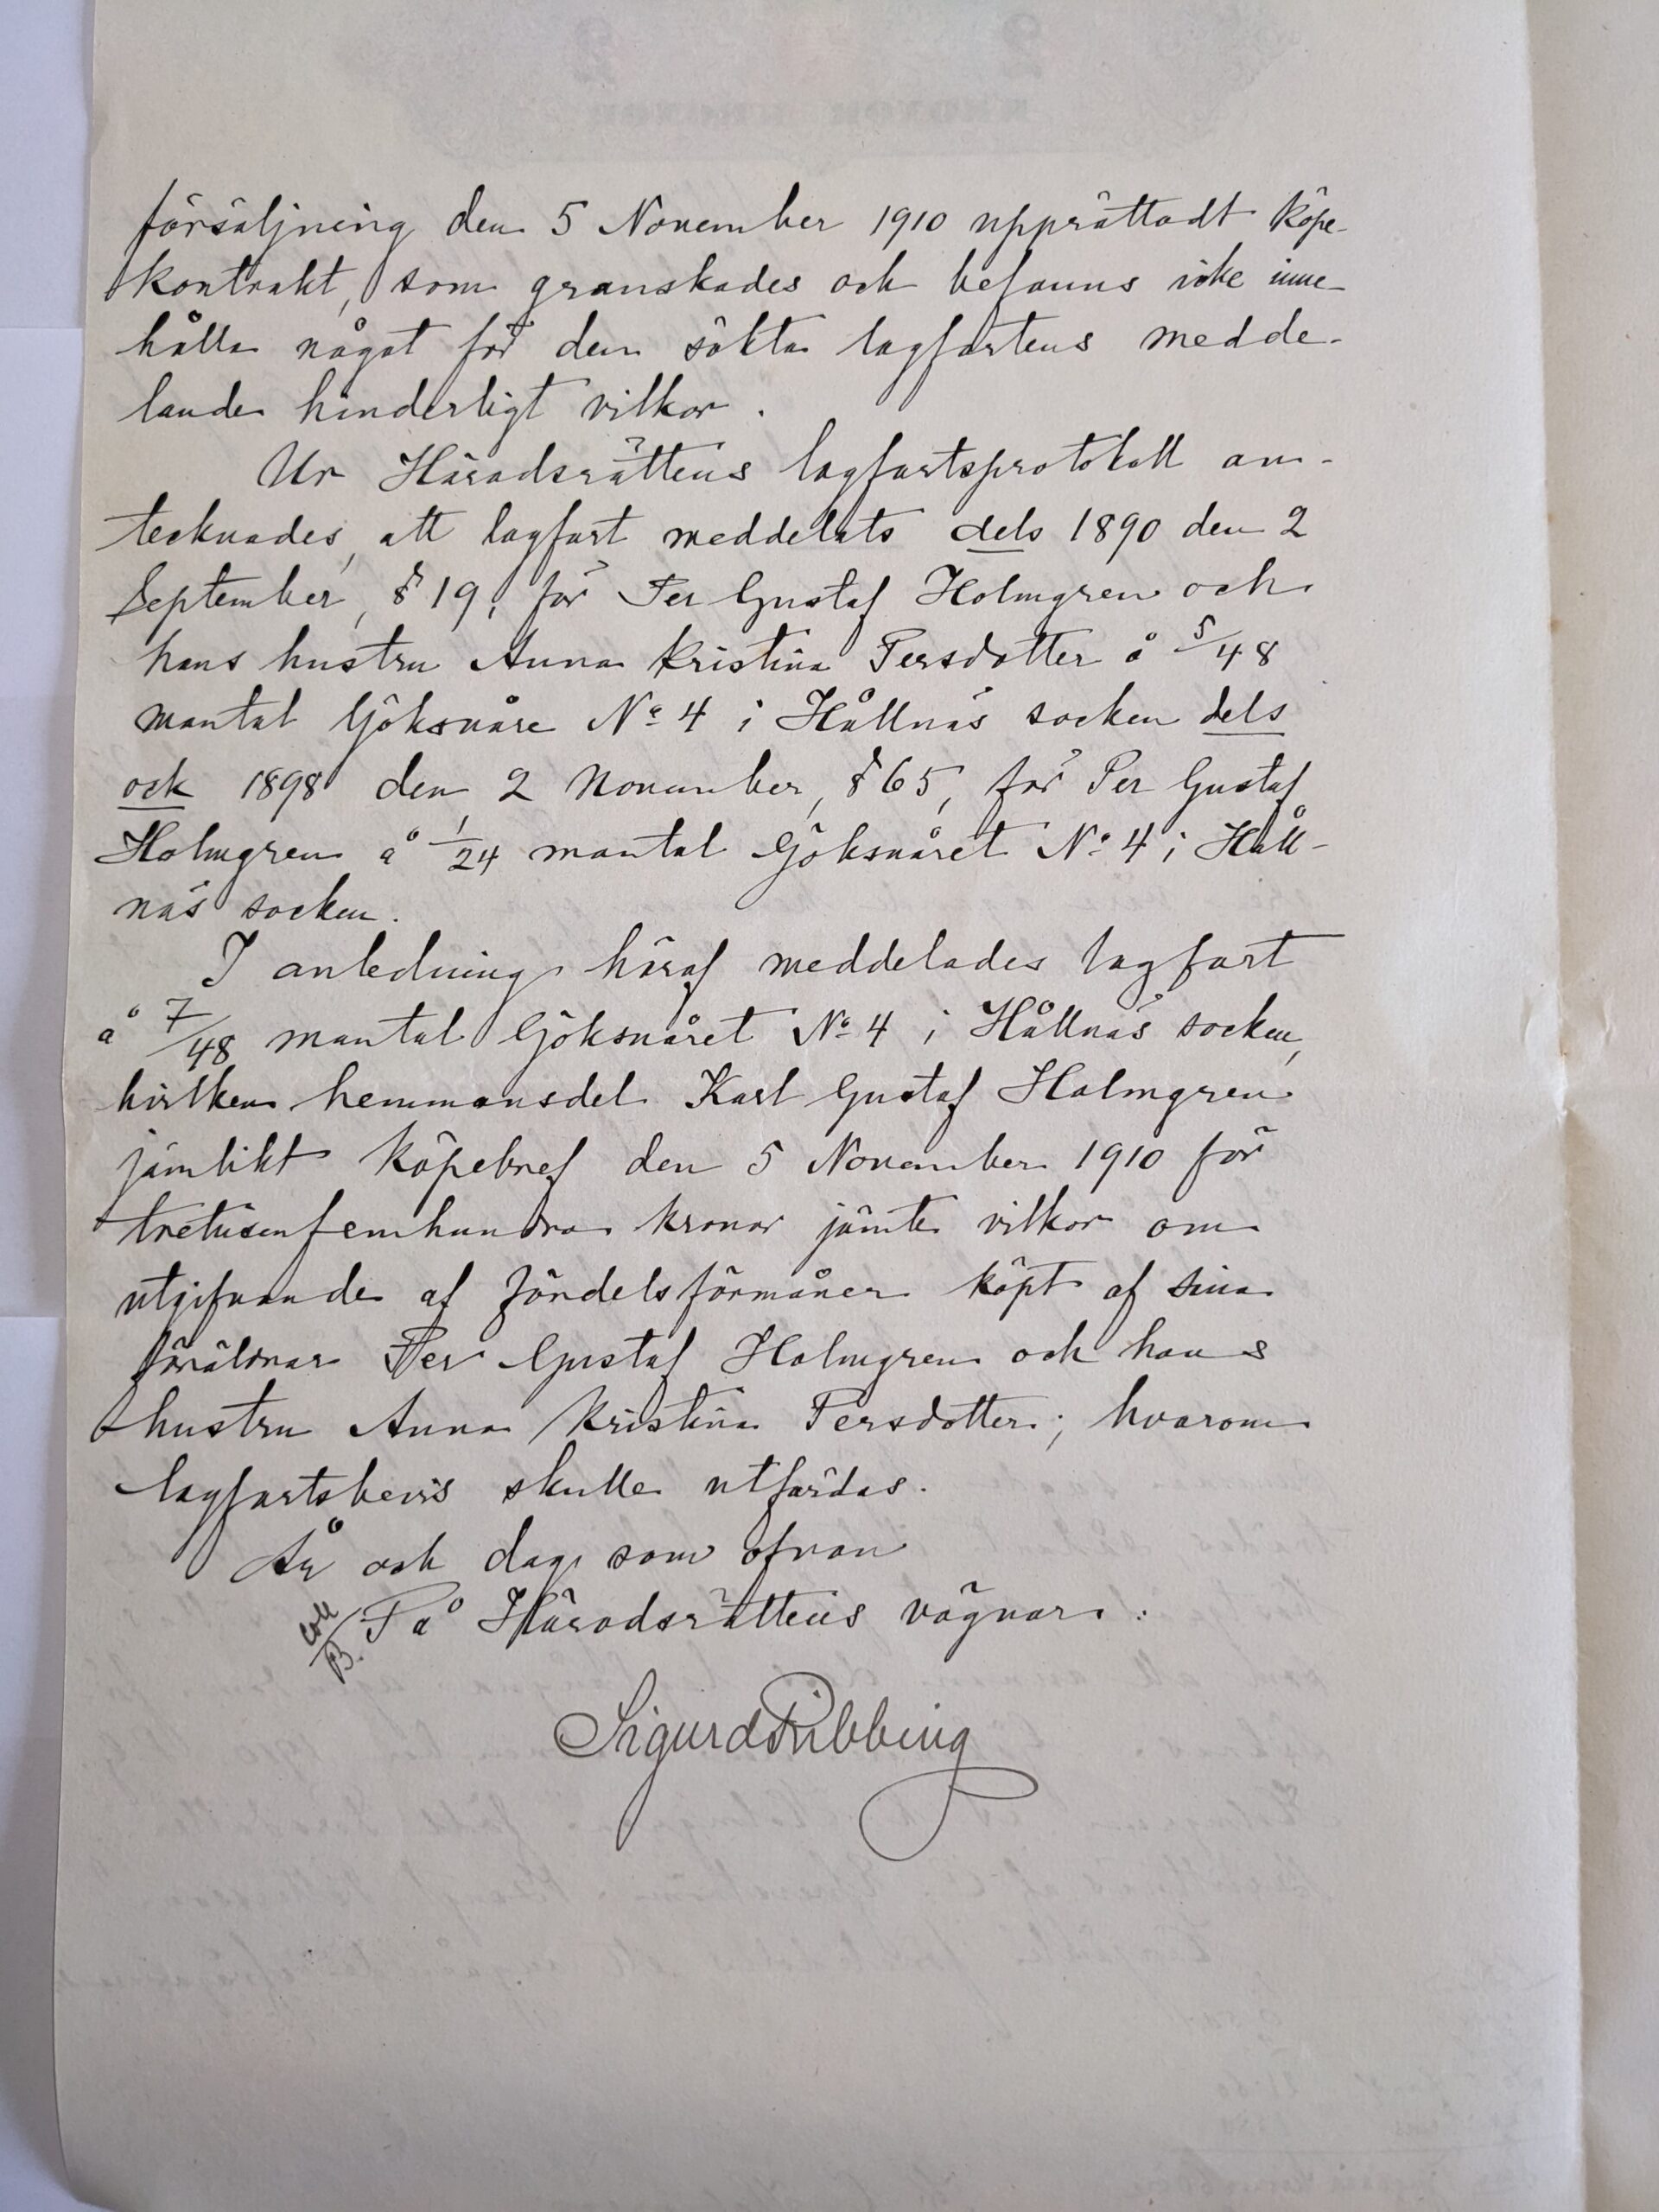 försäljning den 5 November 1910 upprättadt köpe-
kontrakt, som granskades och befanns icke inne-
hålla något för den sökta lagfartens medde-
lande hinderligt vilkor.
Ur Häradsrättens lagfartsprotokoll an-
tecknades, att lagfart meddelats dels 1890 den 2
September, § 19, för Per Gustaf Holmgren och
hans hustru Anna Kristina Persdotter å 5/48
mantal Göksnåre No 4 i Hållnäs socken dels
ock 1898 den 2 November, § 65, för Per Gustaf
Holmgren å 1/24 mantal Göksnåret No 4 i Håll-
näs socken.
I anledning häraf meddelades lagfart
å 7/48 mantal Göksnåret No 4 i Hållnäs socken,
hvilken hemmansdel Karl Gustaf Holmgren
jämlikt köpebref den 5 November 1910 för
tretusenfemhundra kronor jämte vilkor om
utgifvande af födelsförmåner köpt af sina
föräldrar Per Gustaf Holmgren och hans
hustru Anna Kristina Persdotter; hvarom
lagfartsbevis skulle utfärdas.
År och dag som ofvan
Coll/B. På Häradsrättens vägnar:
Sigurd Ribbing